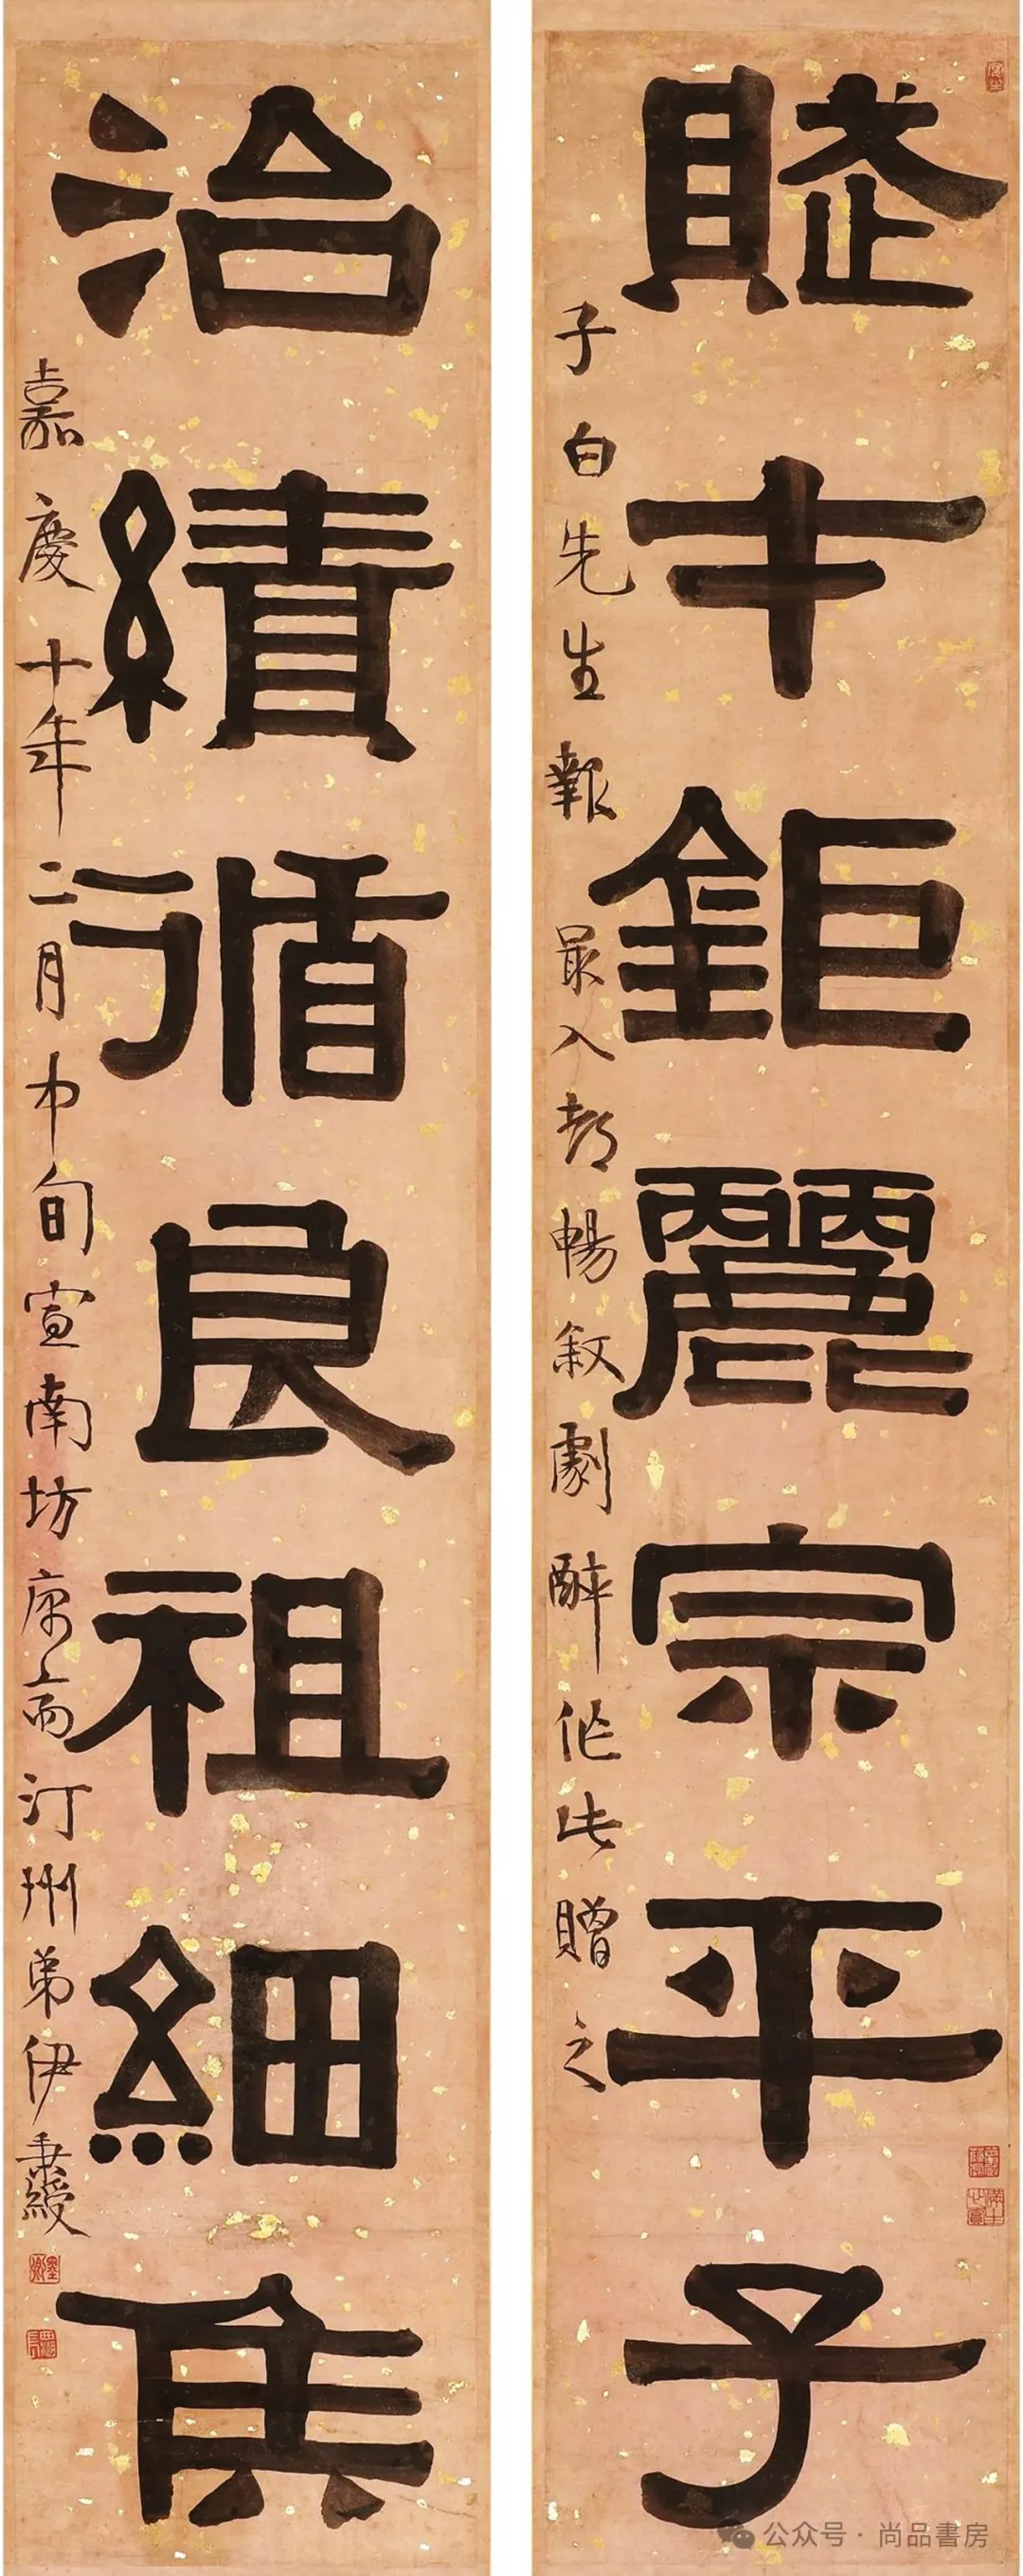 賦才鉅麗宗平子
子白先生報最入都暢敘劇醉作此贈之
治績循良祖細侯
嘉慶十年二月中旬宣南坊庽齋汀州弟伊秉綬
墨卿
公众号 · 尚品書房